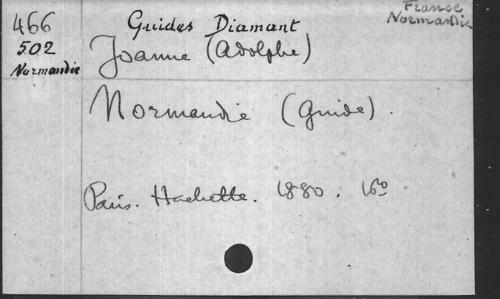 466
502
Normandie
Guides Diamant
France
Normandie
Joanne (Adolphe)
Normandie (Guide).
Paris. Hachette. 1880. 16º